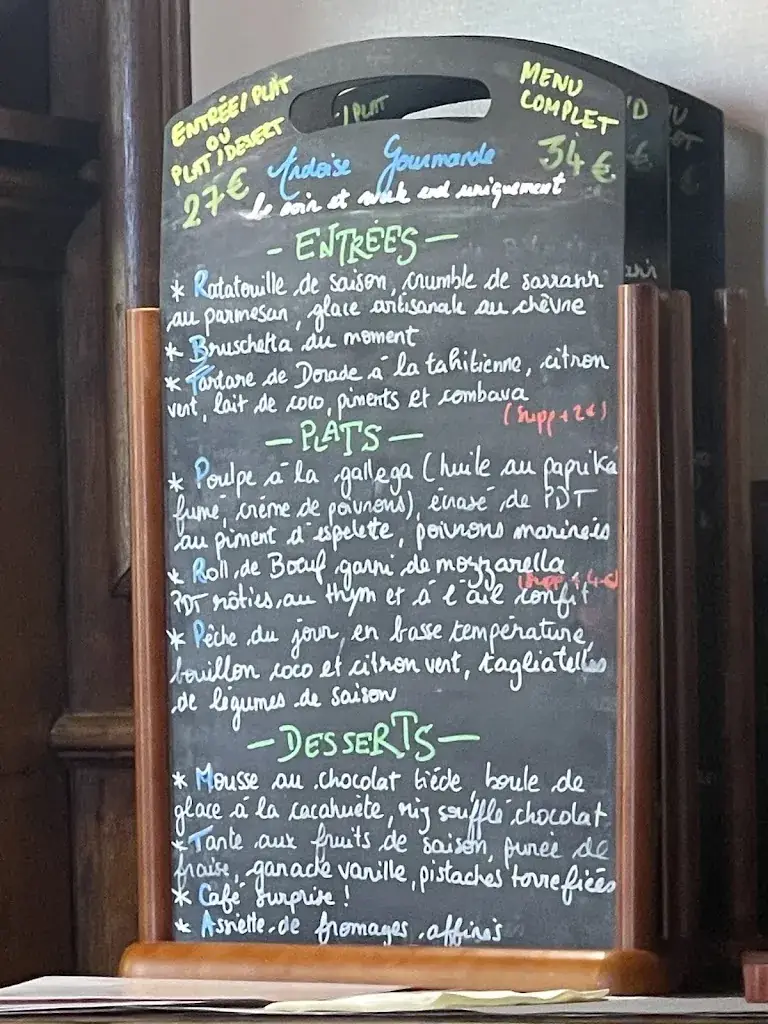 ENTRÉE/PLAT
OU
PLAT/DESERT
27€
/PLAT
MENU
COMPLET
34€
Ardoise Gourmande
le soir et week end uniquement
- ENTRÉES -
* Ratatouille de saison, crumble de sarrasin
au parmesan, glace artisanale au chèvre
* Bruschetta du moment
* Tartare de Dorade à la tahitienne, citron
vert, lait de coco, piments et combava
(supp+2€)
- PLATS -
* Poulpe à la gallega (huile au paprika
fumé, crème de poivrons), écrasé de PDT
au piment d'espelette, poivrons marinés
* Roll de Boeuf garni de mozzarella
(supp+4€)
PDT rôties au thym et à l'ail confit
* Pêche du jour, en basse température,
bouillon coco et citron vert, tagliatelles
de légumes de saison
- DESSERTS -
* Mousse au chocolat tiède, boule de
glace à la cacahuète, riz soufflé chocolat
* Tarte aux fruits de saison, purée de
fraise, ganache vanille, pistaches torrefiées
* Café surprise !
* Assiette de fromages affinés